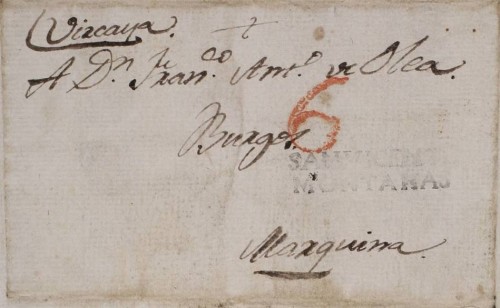 Vizcaya.
A Dn. Franco. Anto. de Olea.
Burgos.
6
MONTAÑAS
Marquina.